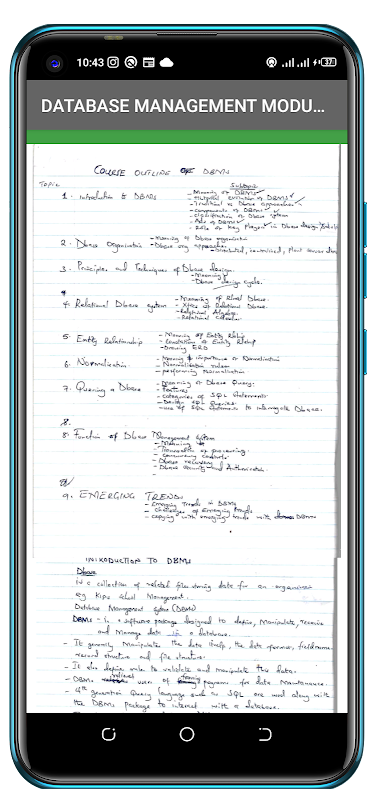 10:43
37
DATABASE MANAGEMENT MODU...
COURSE OUTLINE OF DBMS
TOPIC
Subtopic
1. Introduction to DBMS
- Meaning of DBMS
- Historical Evolution of DBMS
- Traditional vs Dbase approaches
- Components of DBMS
- Classification of Dbase systems
- Role of Key Players in Dbase design
2. Dbase Organisation
- Meaning of Dbase organisation
- Dbase org approaches
- Distributed, centralised,
3. Principles and Techniques of Dbase design
- Meaning
- Dbase design cycle.
4. Relational Dbase system
- Meaning of Rlnal Dbase.
- of Relational Dbase.
- Relational Algebra
- Relational Calculus
5. Entity Relationship
- Meaning of Entity Rship
- of Entity Rship
- Drawing ERD
6. Normalisation
- Meaning & importance of Normalisation
- Normalisation rules
- performing Normalisation
7. Querying a Dbase
- Meaning of Dbase Query.
- Features
- Categories of SQL statements
- Design SQL Queries
- use of SQL statements to interrogate Dbases.
8.
8. Function of Dbase Management System
- Meaning
- Transaction processing
- Concurrency controls
- Dbase recovery
- Dbase security and Authorisation
9. EMERGING TRENDS
- Emerging Trends in DBMS
- Challenges of Emerging trends
- Copying with emerging trends with DBMS
INTRODUCTION TO DBMS
Dbase
is a collection of related files storing data for an organisation
eg Kips school Management.
Database Management System (DBMS)
DBMS - is a software package designed to define, Manipulate, receive
and Manage data in a database.
- It generally Manipulates the data itself, the data format, field name
record structure and file structure.
- It also define rule to validate and manipulate this data.
- DBMS users of programs for data Maintanance.
- 4th generation Query language such as SQL are used along with
the DBMS package to interact with a database.